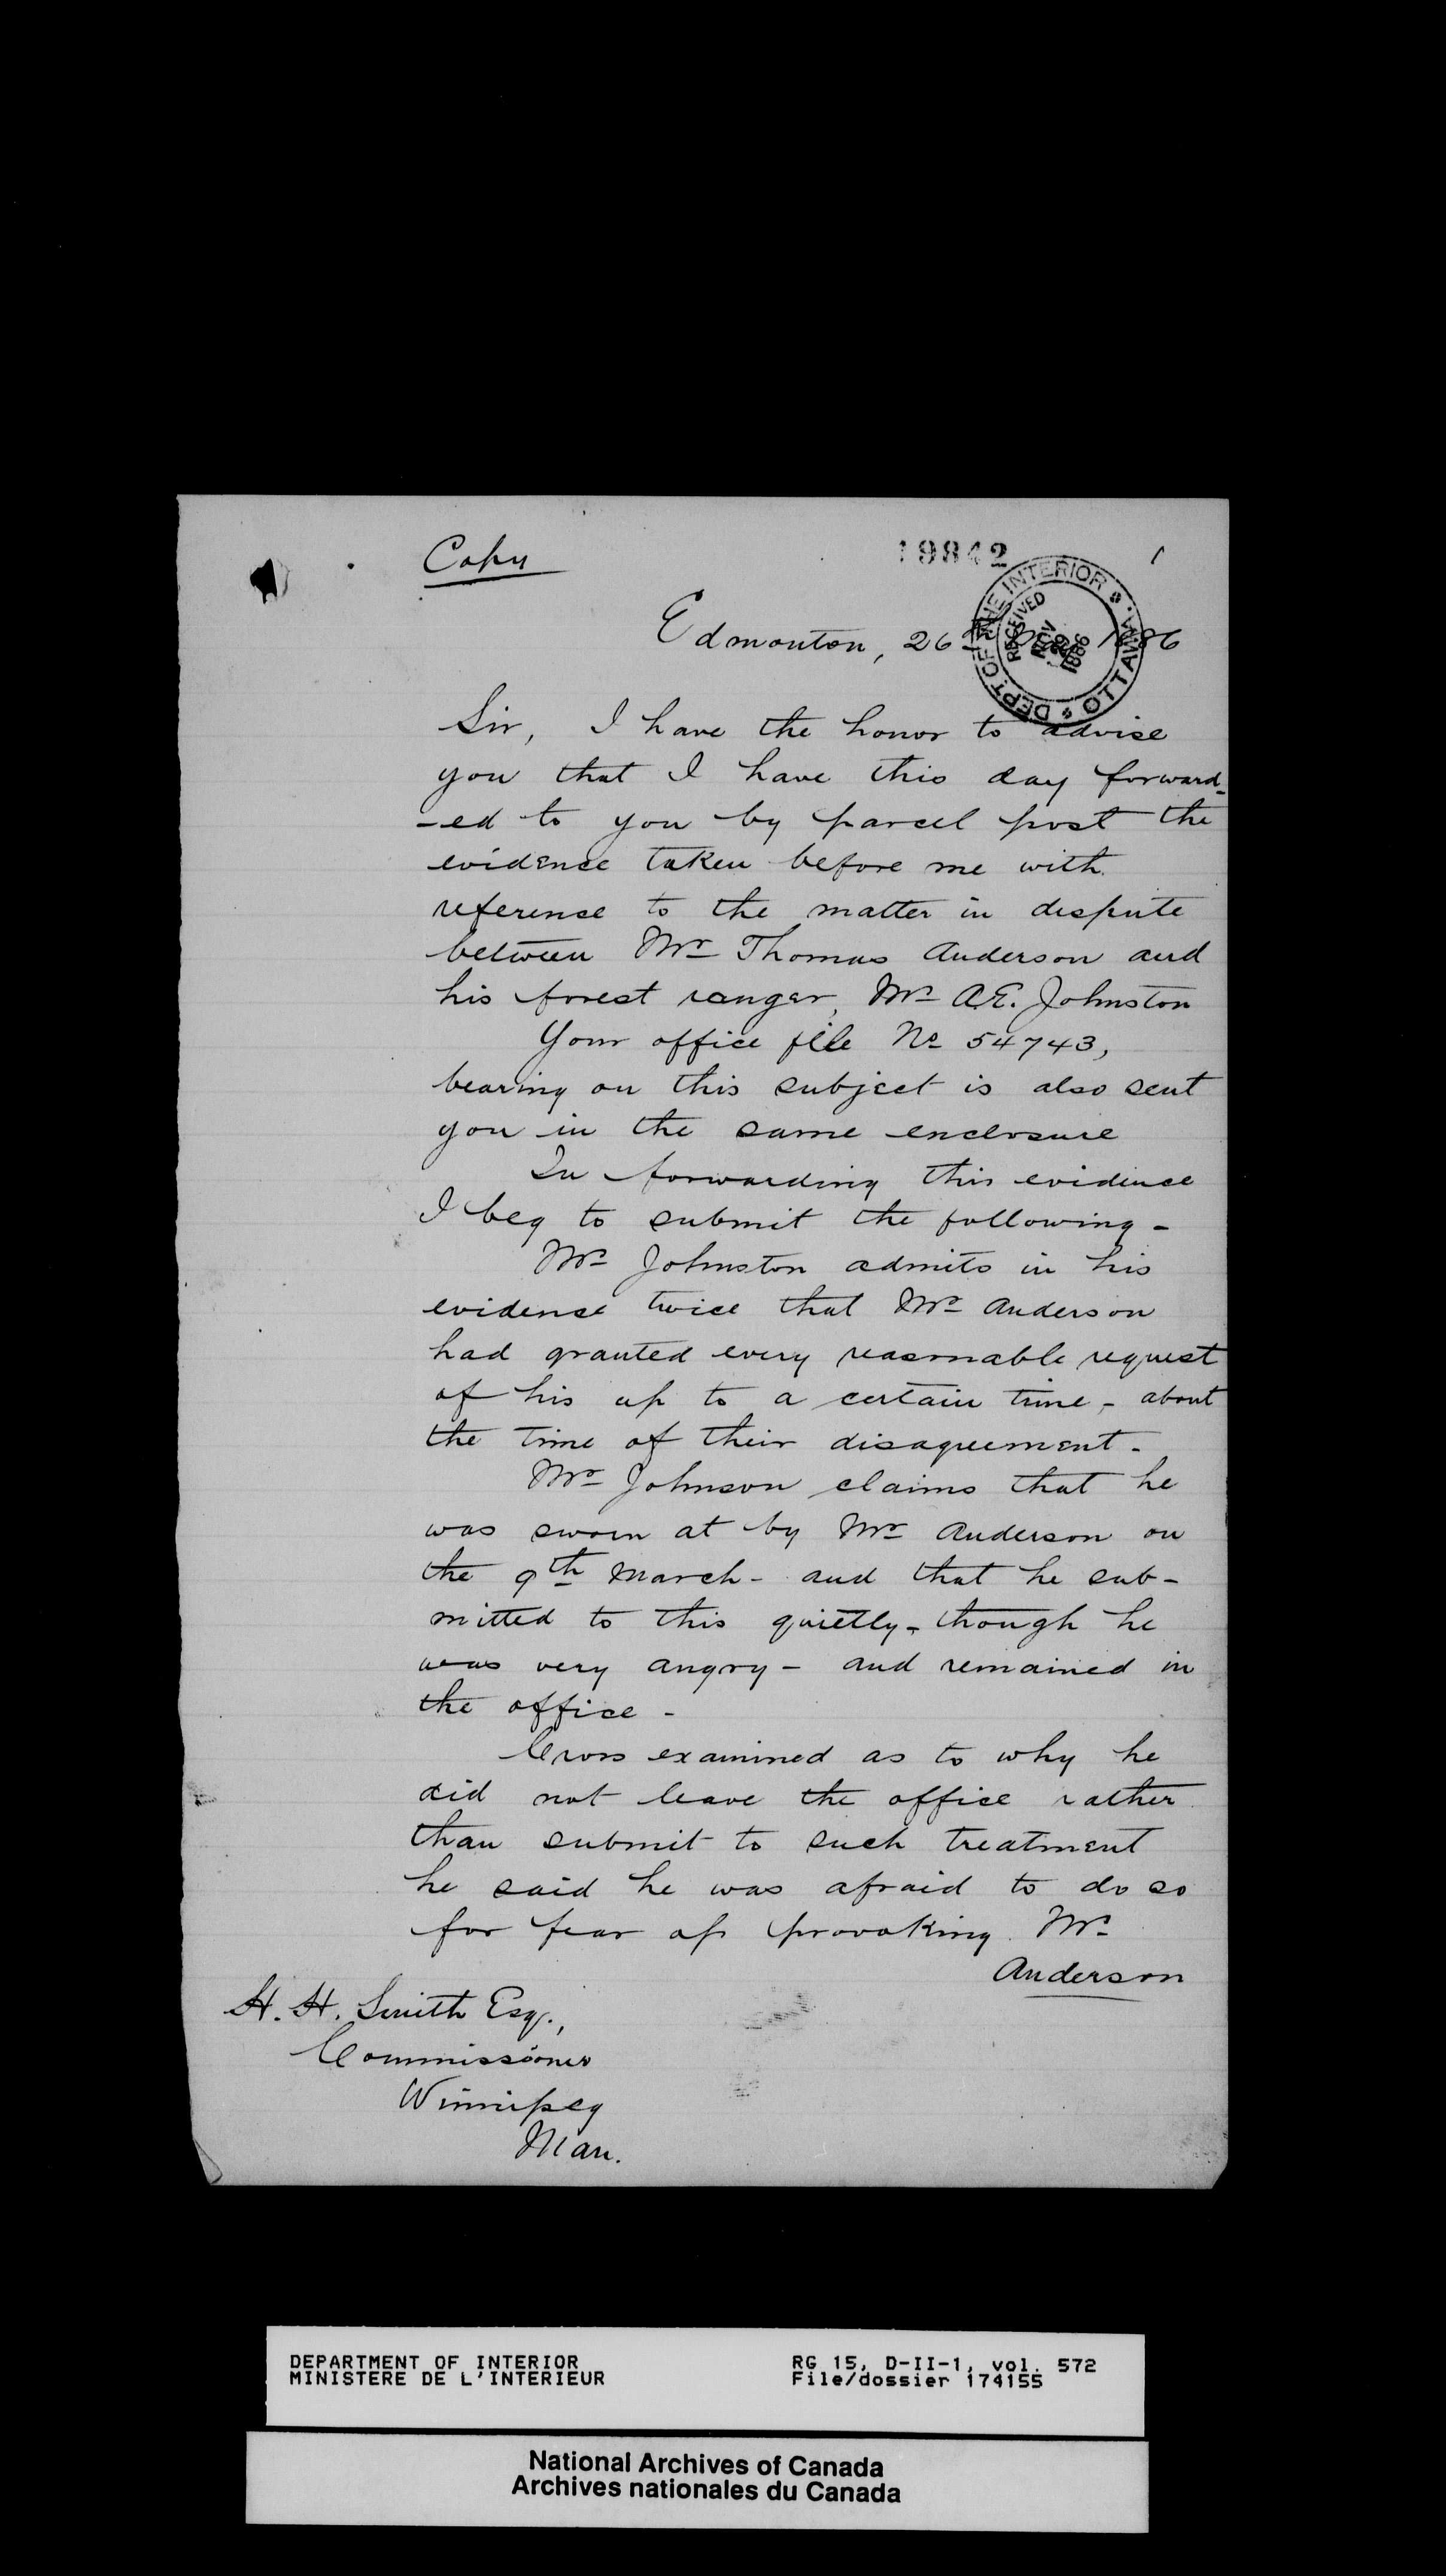 Copy
19842
1
DEPT. OF THE INTERIOR
RECEIVED
NOV
1886
OTTAWA
Edmonton, 26th 1886
Sir, I have the honor to advise
you that I have this day forward-
-ed to you by parcel post the
evidence taken before me with
reference to the matter in dispute
between Mr Thomas Anderson and
his forest ranger, Mr A.E. Johnston
Your office file No 54743,
bearing on this subject is also sent
you in the same enclosure
In forwarding this evidence
I beg to submit the following -
Mr Johnston admits in his
evidence twice that Mr Anderson
had granted every reasonable request
of his up to a certain time - about
the time of their disagreement -
Mr Johnson claims that he
was sworn at by Mr Anderson on
the 9th March - and that he sub-
mitted to this quietly - though he
was very angry - and remained in
the office -
Cross examined as to why he
did not leave the office rather
than submit to such treatment
he said he was afraid to do so
for fear of provoking Mr
Anderson
H. H. Smith Esq.,
Commissioner
Winnipeg
Man.
DEPARTMENT OF INTERIOR
MINISTERE DE L'INTERIEUR
RG 15, D-II-1, vol. 572
File/dossier 174155
National Archives of Canada
Archives nationales du Canada